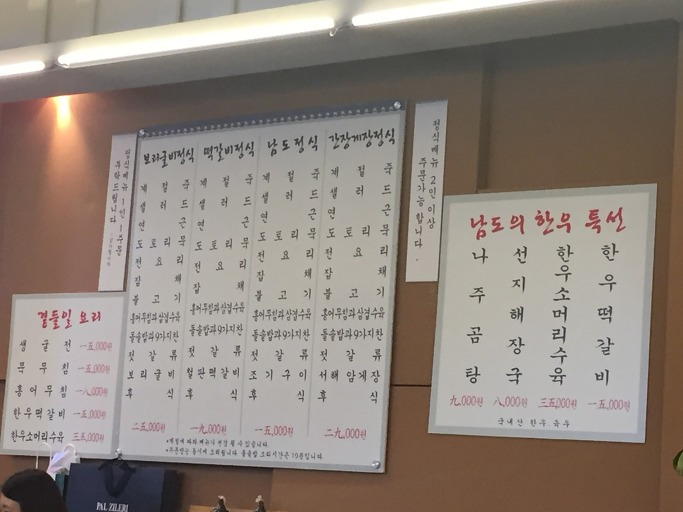 정식메뉴 1인 1주문
부탁드립니다
보리굴비정식 떡갈비정식 남도정식 간장게장정식
계절죽 계절죽 계절죽 계절죽
샐러드 샐러드 샐러드 샐러드
연근 연근 연근 연근
도토리묵 도토리묵 도토리묵 도토리묵
전요리 전요리 전요리 전요리
잡채 잡채 잡채 잡채
불고기 불고기 불고기 불고기
홍어무침과삼겹수육 홍어무침과삼겹수육 홍어무침과삼겹수육 홍어무침과삼겹수육
돌솥밥과9가지찬 돌솥밥과9가지찬 돌솥밥과9가지찬 돌솥밥과9가지찬
젓갈류 젓갈류 젓갈류 젓갈류
보리굴비 철판떡갈비 조기구이 서해암게장
후식 후식 후식 후식
二五,000원 一九,000원 一五,000원 二九,000원
*계절에 따라 메뉴가 변경 될 수 있습니다.
*주문받는 동시에 조리됩니다. 돌솥밥 조리시간은 19분입니다.
정식메뉴 2인이상
주문가능합니다.
곁들일 요리
생굴전 一五,000원
묵무침 一五,000원
홍어무침 一八,000원
한우떡갈비 一五,000원
한우소머리수육 三五,000원
남도의 한우 특선
나주곰탕 선지해장국 한우소머리수육 한우떡갈비
九,000원 八,000원 三五,000원 一五,000원
국내산 한우 육우
PAL ZILERI